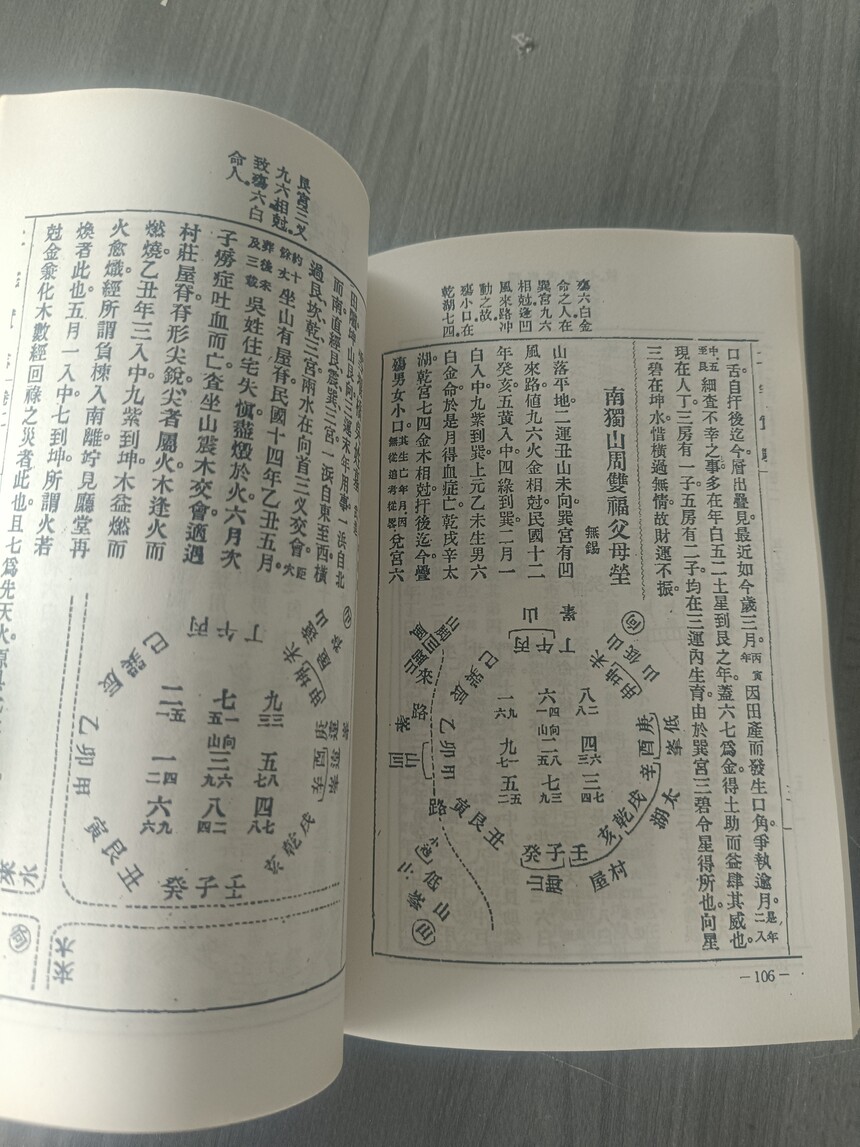 殤六白金
命之人在
巽宮九六
相尅逢凹
風來路冲
動之故
殤小口在
乾湖七四
口舌自扞後迄今層出疊見最近如今歲三月丙寅年因田產而發生口角爭執逾月是年二入
中五至艮細査不幸之事多在年白五二土星到艮之年蓋六七爲金得土助而益肆其威也
現在人丁三房有一子五房有二子均在三運內生育由於巽宮三碧令星得所也向星
三碧在坤水惜橫過無情故財運不振
南獨山周雙福父母塋
無錫
山落平地二運丑山未向巽宮有凹
風來路値九六火金相尅民國十二
年癸亥五黃入中四綠到巽二月一
白入中九紫到巽上元乙未生男六
白金命於是月得血症亡乾戌辛太
湖乾宮七四金木相尅扞後迄今疊
殤男女小口其生亡年月因無從追考從畧兌宮六
向
山
低
未坤申
丁午丙
山
峯
巳巽辰
來
路
乙卯甲
寅艮丑
路
癸子壬
亥乾戌
辛酉庚
低
峯
太
湖
村
屋
低
山
山
峯
八
二八
四
六三
三
七四
六
四一
山向
二
八五
七
三九
一
九六
九
一七
五
二五
－106－
艮宮三叉
九六相尅
致殤六白
命人
而南直經艮震巽三宮一浜自東至西橫
過艮坎乾三宮兩水在向首三叉交會距
約十餘丈葬後未及三載坐山有屋脊民國十四年乙丑五月
吳姓住宅失愼盡燬於火六月次
子癆症吐血而亡査坐山震木交會適遇
村莊屋脊脊形尖銳尖者屬火木逢火而
燃燒乙丑年三入中九紫到坤木益燃而
火愈熾經所謂負棟入南離竚見廳堂再
煥者此也五月一入中七到坤所謂火若
尅金兼化木數經回祿之災者此也且七爲先天火
丁午丙
巳巽辰
乙卯甲
寅艮丑
癸子壬
亥乾戌
申坤未
九
三三
五
八七
四
七八
七
一五
山向
三
六九
八
二四
二
五一
一
四二
六
九六
水
來
向